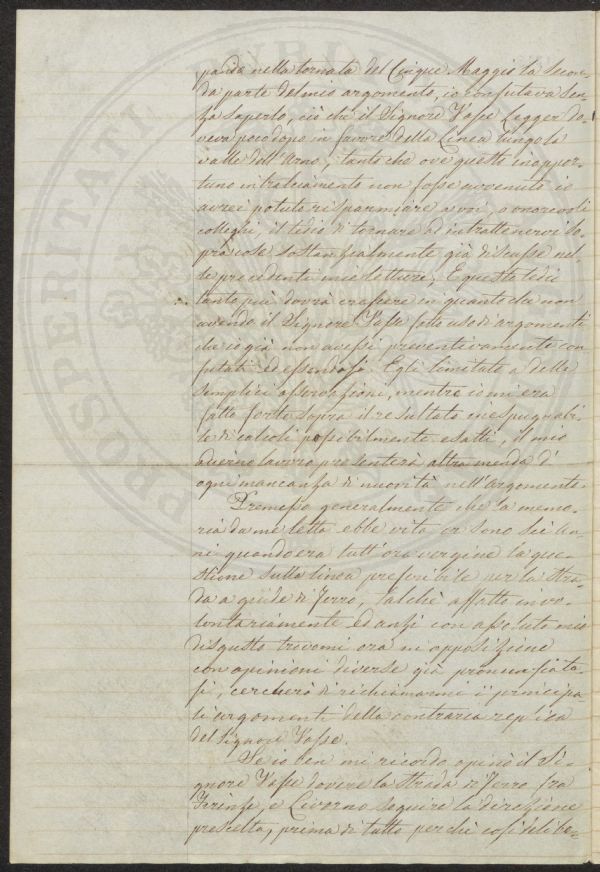 nella tornata del Cinque Maggio la Secon-
da parte del mio argomento, io confutava sen-
za saperlo, ciò che il Signore Vasse legger do-
veva poco dopo in favore della Linea lungo la
valle dell'Arno, tanto che ove questo inoppor-
tuno intralciamento non fosse avvenuto io
avrei potuto risparmiare a voi, o onorevoli
colleghi, il tedio di tornare ad intrattenervi so-
pra cose sostanzialmente già discusse nel-
le precedenti mie letture, E questo tedio
tanto più dovrà crescere in quanto che non
avendo il Signore Vasse fatto uso di argomenti
che io già non avessi preventivamente con
futati ed essendosi Egli limitato a delle
semplici asserzioni, mentre io mi era
fatto forte sopra il resultato inespugnabi-
le di calcoli possibilmente esatti, il mio
odierno lavoro presenterà altra menda d'
ogni mancanza di nuovità nell'argomento.
Premesso generalmente che la memo-
ria da me letta ebbe vita or sono sei an-
ni quando era tutt'ora vergine la que-
stione sulla linea preferibile per la Stra-
da a guide di Ferro, talchè affatto invo-
lontariamente ed anzi con assoluto mio
disgusto trovomi ora in opposizione
con opinioni diverse già pronunziate-
si, cercherò di richiamarmi i principa-
li argomenti della contraria replica
del Signore Vasse.
Se io ben mi ricordo opinò il Si-
gnore Vasse dovere la Strada di Ferro fra
Firenze, e Livorno seguire la direzione
prescelta, prima di tutto perchè così delibe-
PROSPERITATI PUBLI